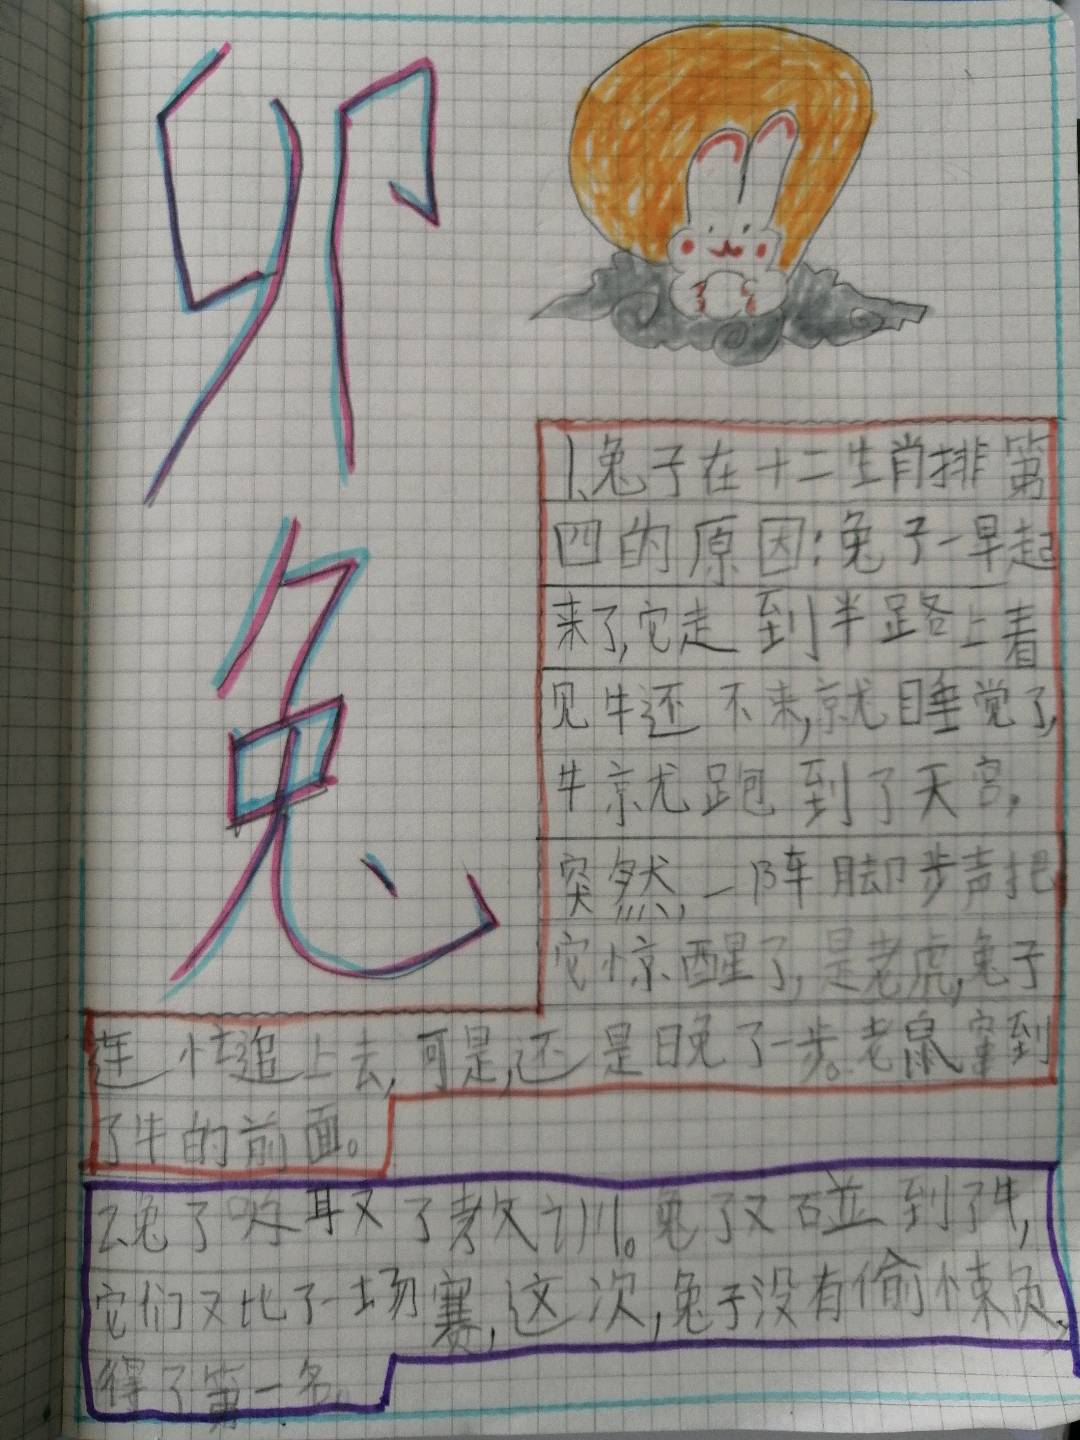 卯
兔
1、兔子在十二生肖排第
四的原因:兔子一早起
来了,它走到半路上看
见牛还不来,就睡觉了,
牛京尤跑到了天宫。
突然,一阵脚步声把
它惊醒了,是老虎,兔子
连忙追上去,可是,还是晚了一步。老鼠窜到
了牛的前面。
2、兔子吸取了教训。兔子又碰到了牛,
它们又比了一场赛,这次,兔子没有偷懒,
得了第一名。